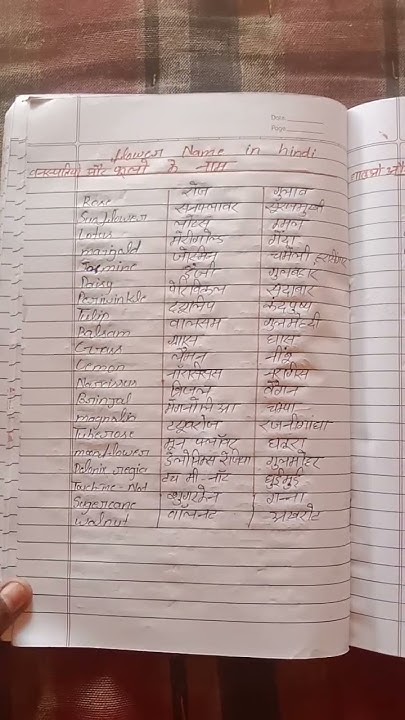 Date
Page
flower Name in hindi
वनस्पतियो और फूलो के नाम
Rose रोज गुलाब
Sunflower सनफ्लावर सूरजमुखी
Lotus लोटस कमल
marigold मेरीगोल्ड गेंदा
Jasmine जेस्मीन चमेली
Daisy डेजी गुलबहार
Periwinkle पेरिविंकल सदाबहार
Tulip ट्यूलिप कंदपुष्प
Balsam बालसम गुलमेंहदी
Grass ग्रास घास
Lemon लेमन नींबू
Narcissus नरगिस
Brinjal ब्रिंजल बैंगन
magnolia मैगनोलिआ चम्पा
Tuberose ट्यूबरोज रजनीगांधा
moonflower मून फ्लॉवर धतूरा
Delonix regia डेलोनिक्स रेजिया गुलमोहर
Touch me-Not टच मी-नॉट छुईमुई
Sugercane शुगरकेन गन्ना
walnut वॉलनट अखरोट